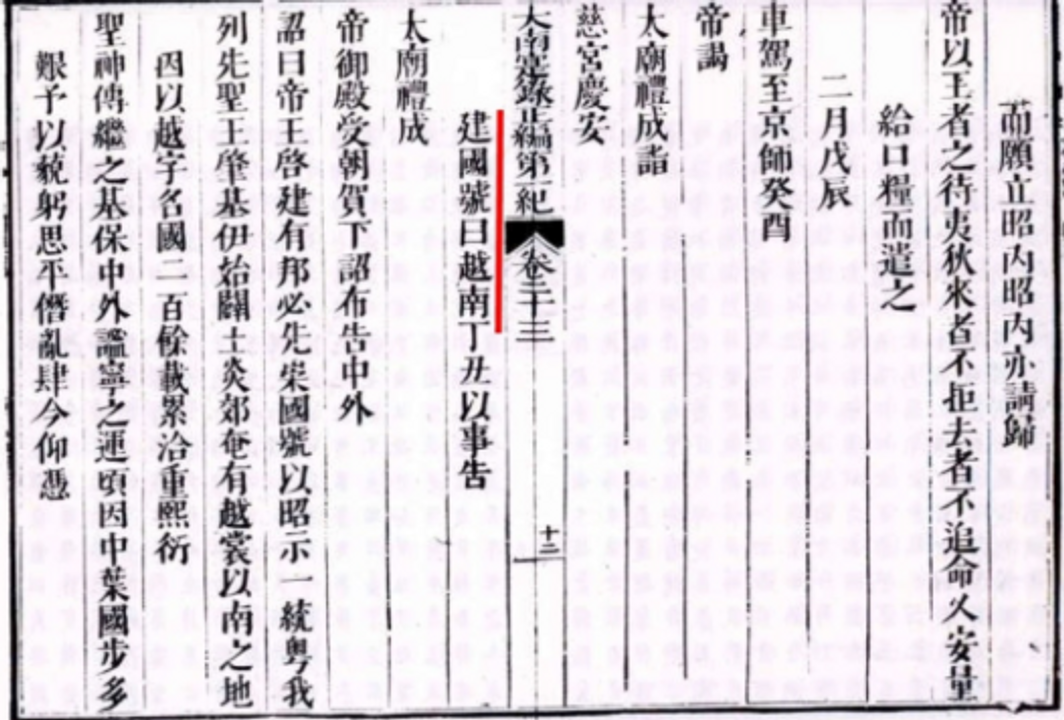 願立昭內昭內亦請歸
帝以王者之待夷狄來者不拒去者不追命乂安量
給口糧而遣之
二月戊辰
車駕至京師癸酉
帝謁
太廟禮成詣
慈宮慶安
大南寔錄正編第一紀 卷二十三 十二
建國號曰越南丁丑以事告
太廟禮成
帝御殿受朝賀下詔布告中外
詔曰帝王啓建有邦必先崇國號以昭示一統粤我
列先聖王肇基伊始闢土炎郊奄有越裳以南之地
因以越字名國二百餘載累洽重熙衍
聖神傳繼之基保中外謐寧之運頃因中葉國步多
艱予以藐躬思平僭亂肆今仰憑